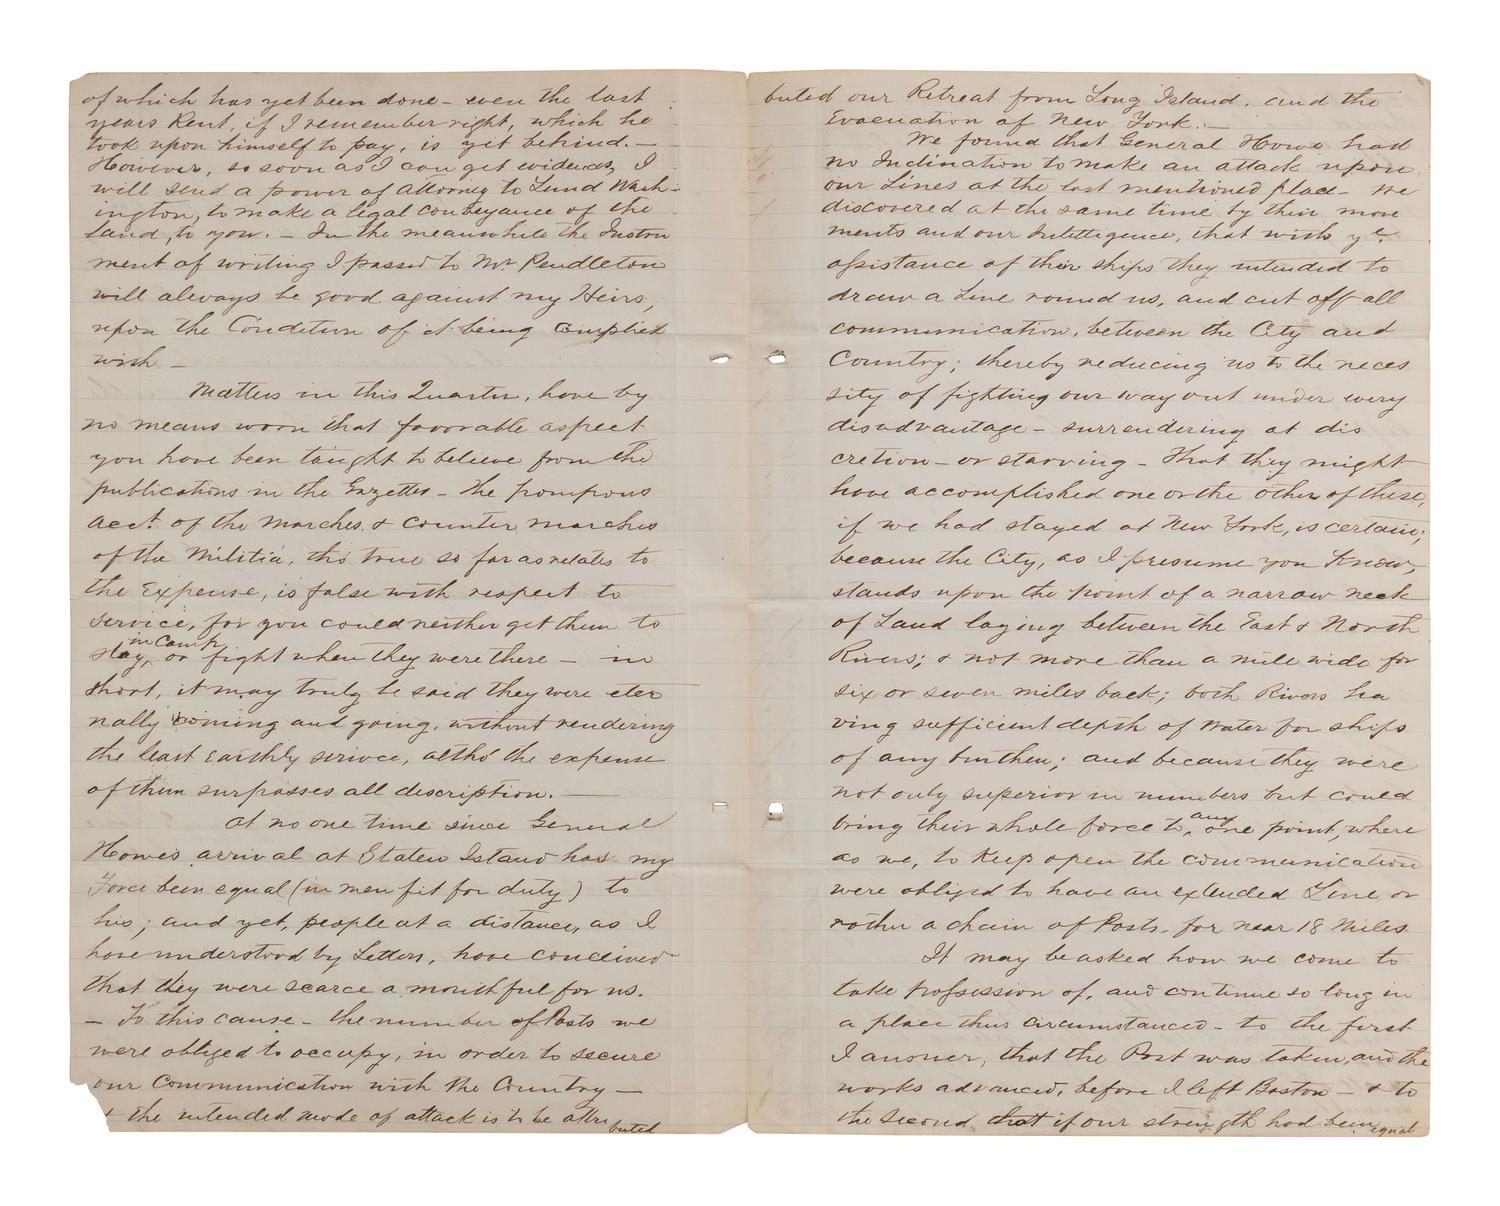 of which has yet been done - even the last
years Rent, if I remember right, which he
took upon himself to pay, is yet behind. -
However, so soon as I can get evidences, I
will send a power of attorney to Lund Wash-
ington, to make a legal conveyance of the
Land, to you. - In the meanwhile the Instru
ment of writing I passed to Mr Pendleton
will always be good against my Heirs,
upon the Condition of it being complied
with -
Matters in this Quarter, have by
no means worn that favorable aspect
you have been taught to believe from the
publications in the Gazettes - The pompous
acct. of the marches, & counter marches
of the Militia, tho' true so far as relates to
the Expense, is false with respect to
service, for you could neither get them to
stay, in Camp or fight when they were there - in
short, it may truly be said they were eter
nally coming and going, without rendering
the least Earthly serivce, altho' the expense
of them surpasses all description. -
At no one time since General
Howe's arrival at Staten Island has my
Force been equal (in men fit for duty) to
his; and yet, people at a distance, as I
have understood by Letters, have conceived
that they were scarce a mouthful for us.
- To this cause - the number of Posts we
were obliged to occupy, in order to secure
our Communication with the Country -
& the intended mode of attack is to be attri
buted
buted our Retreat from Long Island, and the
Evacuation of New York. -
We found that General Howe had
no Inclination to make an attack upon
our Lines at the last mentioned place - We
discovered at the same time by their move
ments and our Intelligence, that with ye.
assistance of their ships they intended to
draw a Line round us, and cut off all
communication, between the City and
Country; thereby reducing us to the neces
sity of fighting our way out under every
disadvantage - surrendering at dis
cretion - or starving - That they might
have accomplished one or the other of these,
if we had stayed at New York, is certain;
because the City, as I presume you know,
stands upon the point of a narrow neck
of Land laying between the East & North
Rivers; & not more than a mile wide for
six or seven miles back; both Rivers ha
ving sufficient depth of water for ships
of any burthen; and because they were
not only superior in numbers but could
bring their whole force to any one point, where
as we, to keep open the communication
were obliged to have an extended Line or
rather a chain of Posts, for near 18 Miles.
It may be asked how we come to
take Possession of, and continue so long in
a place thus circumstanced - to the first
I answer, that the Post was taken, and the
works advanced, before I left Boston - & to
the second that if our strength had been
equal